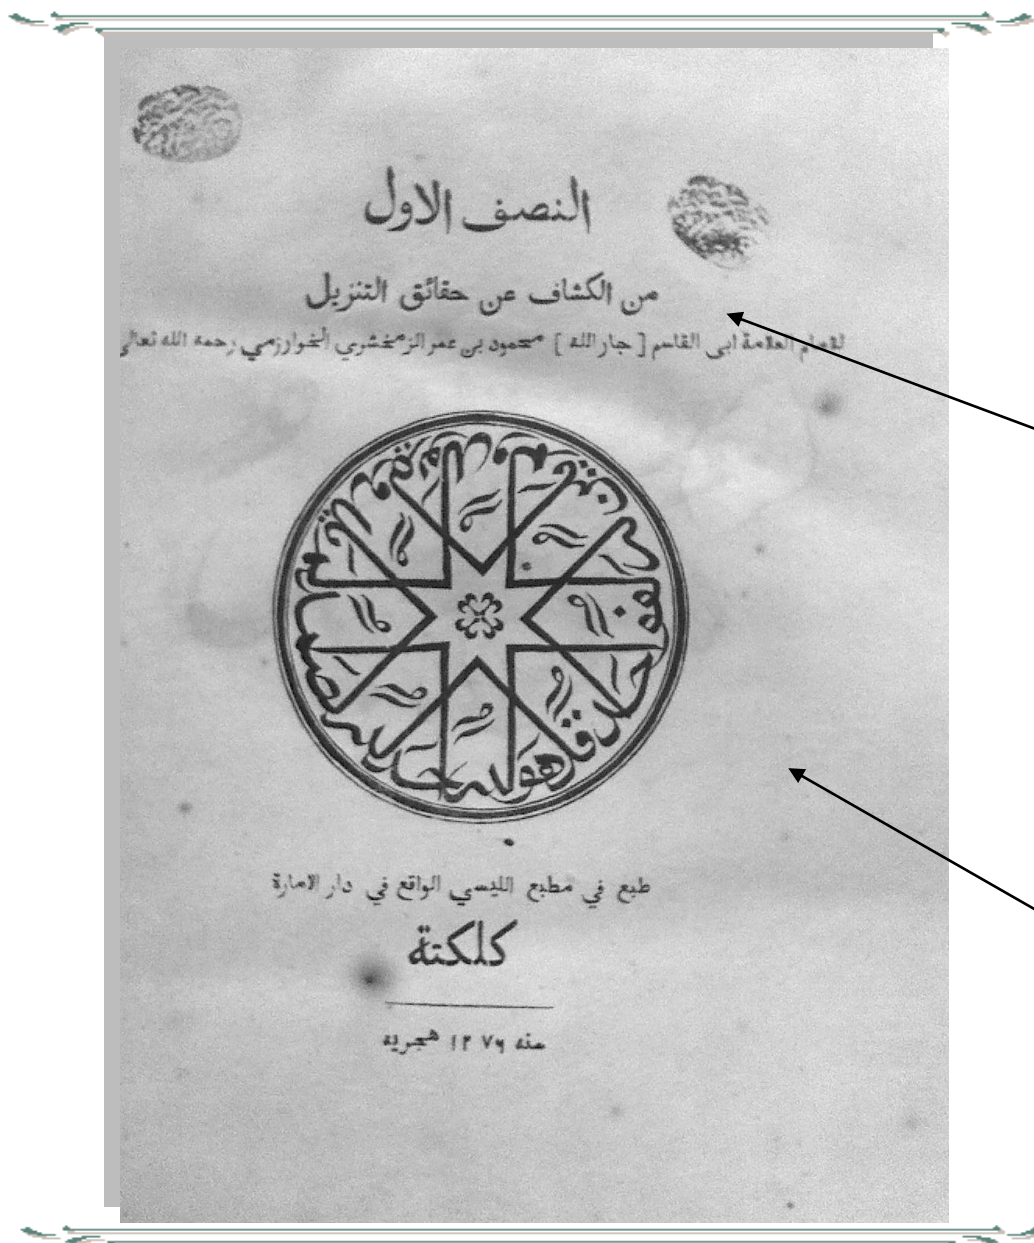 النصف الاول
من الكشاف عن حقائق التنزيل
للامام العلامة ابى القاسم [ جار الله ] محمود بن عمر الزمخشري الخوارزمي رحمه الله تعالى
قل هو الله احد الله الصمد
طبع في مطبع الليسي الواقع في دار الامارة
كلكتة
سنه ١٢٧٦ هجريه